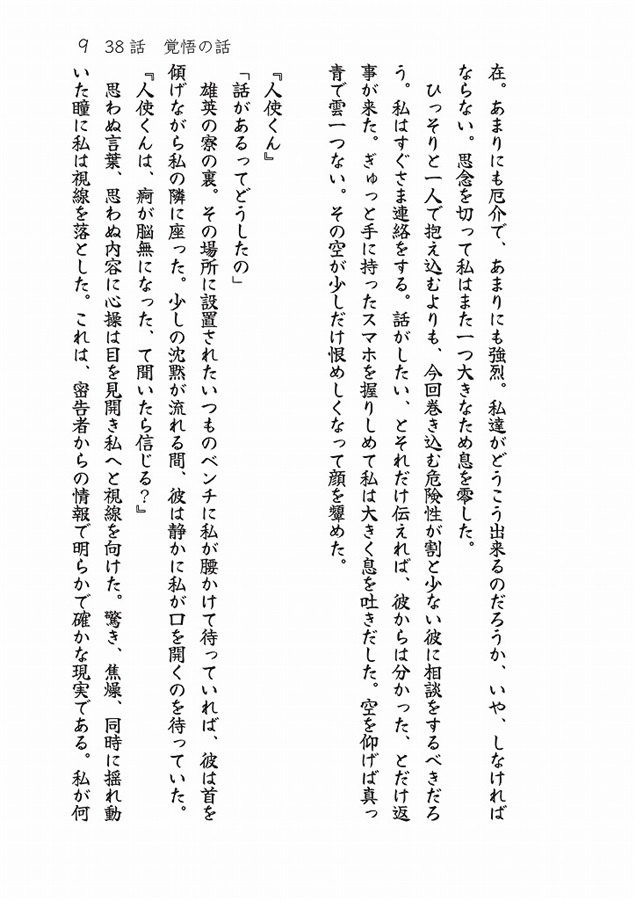 9 38話 覚悟の話
在。あまりにも厄介で、あまりにも強烈。私達がどうこう出来るのだろうか、いや、しなければ
ならない。思念を切って私はまた一つ大きなため息を零した。
ひっそりと一人で抱え込むよりも、今回巻き込む危険性が割と少ない彼に相談をするべきだろ
う。私はすぐさま連絡をする。話がしたい、とそれだけ伝えれば、彼からは分かった、とだけ返
事が来た。ぎゅっと手に持ったスマホを握りしめて私は大きく息を吐きだした。空を仰げば真っ
青で雲一つない。その空が少しだけ恨めしくなって顔を顰めた。
『人使くん』
「話があるってどうしたの」
雄英の寮の裏。その場所に設置されたいつものベンチに私が腰かけて待っていれば、彼は首を
傾げながら私の隣に座った。少しの沈黙が流れる間、彼は静かに私が口を開くのを待っていた。
『人使くんは、痾が脳無になった、て聞いたら信じる？』
思わぬ言葉、思わぬ内容に心操は目を見開き私へと視線を向けた。驚き、焦燥、同時に揺れ動
いた瞳に私は視線を落とした。これは、密告者からの情報で明らかで確かな現実である。私が何